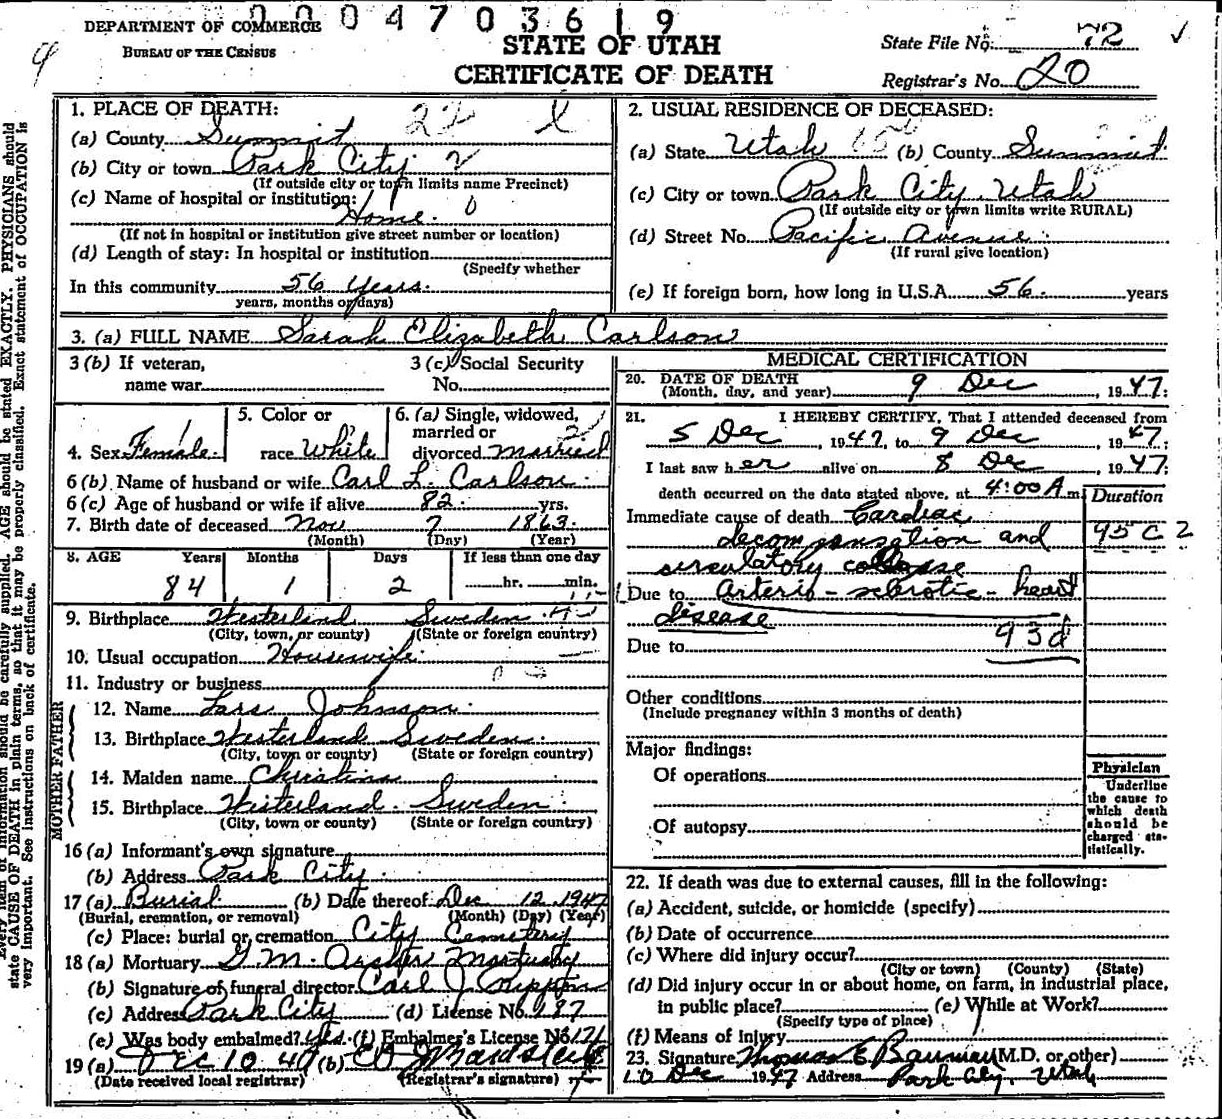 0004703619
DEPARTMENT OF COMMERCE
BUREAU OF THE CENSUS
STATE OF UTAH
CERTIFICATE OF DEATH
State File No. 72
Registrar's No. 20
Every item of information should be carefully supplied. AGE should be stated EXACTLY. PHYSICIANS should
state CAUSE OF DEATH in plain terms, so that it may be properly classified. Exact statement of OCCUPATION is
very important. See instructions on back of certificate.
1. PLACE OF DEATH: 22
(a) County Summit
(b) City or town Park City
(If outside city or town limits name Precinct)
(c) Name of hospital or institution:
Home. 0
(If not in hospital or institution give street number or location)
(d) Length of stay: In hospital or institution
(Specify whether
In this community 56 Years.
years, months or days)
2. USUAL RESIDENCE OF DECEASED:
(a) State Utah (b) County Summit
(c) City or town Park City, Utah
(If outside city or town limits write RURAL)
(d) Street No. Pacific Avenue.
(If rural give location)
(e) If foreign born, how long in U.S.A. 56. years
3. (a) FULL NAME Sarah Elizabeth Carlson
3 (b) If veteran,
name war
3 (c) Social Security
No.
4. Sex Female.
5. Color or
race White
6. (a) Single, widowed,
married or
divorced Married
6 (b) Name of husband or wife Carl L. Carlson.
6 (c) Age of husband or wife if alive 82. yrs.
7. Birth date of deceased Nov 7 1863.
(Month) (Day) (Year)
8. AGE Years Months Days If less than one day
84 1 2 hr. min.
9. Birthplace Westerland Sweden.
(City, town, or county) (State or foreign country)
10. Usual occupation Housewife
11. Industry or business
FATHER
12. Name Lars Johnson.
13. Birthplace Westerland Sweden.
(City, town or county) (State or foreign country)
MOTHER
14. Maiden name Christina
15. Birthplace Westerland. Sweden.
(City, town or county) (State or foreign country)
16 (a) Informant's own signature
(b) Address Park City.
17 (a) Burial (b) Date thereof Dec 12 1947
(Burial, cremation, or removal) (Month) (Day) (Year)
(c) Place: burial or cremation City Cemetery
18 (a) Mortuary G. M. Archer Mortuary
(b) Signature of funeral director Carl J.
(c) Address Park City (d) License No. 287
(e) Was body embalmed? Yes. (f) Embalmer's License No. 171
19 (a) DEC 10 47 (b)
(Date received local registrar) (Registrar's signature)
MEDICAL CERTIFICATION
20. DATE OF DEATH
(Month, day, and year) 9 Dec, 1947;
21. I HEREBY CERTIFY, That I attended deceased from
5 Dec, 1947, to 9 Dec 1947;
I last saw her alive on 8 Dec, 1947;
death occurred on the date stated above, at 4:00 A m.
Duration
Immediate cause of death Cardiac
decompensation and 95 C 2
circulatory collapse
Due to Arterio-sclerotic-heart
disease
Due to 93d
Other conditions
(Include pregnancy within 3 months of death)
Major findings:
Of operations
Of autopsy
Physician
Underline
the cause to
which death
should be
charged sta-
tistically.
22. If death was due to external causes, fill in the following:
(a) Accident, suicide, or homicide (specify)
(b) Date of occurrence
(c) Where did injury occur?
(City or town) (County) (State)
(d) Did injury occur in or about home, on farm, in industrial place,
in public place? (e) While at Work?
(Specify type of place)
(f) Means of injury
23. Signature Thomas E Bauman (M.D. or other)
10 Dec 1947 Address Park City, Utah